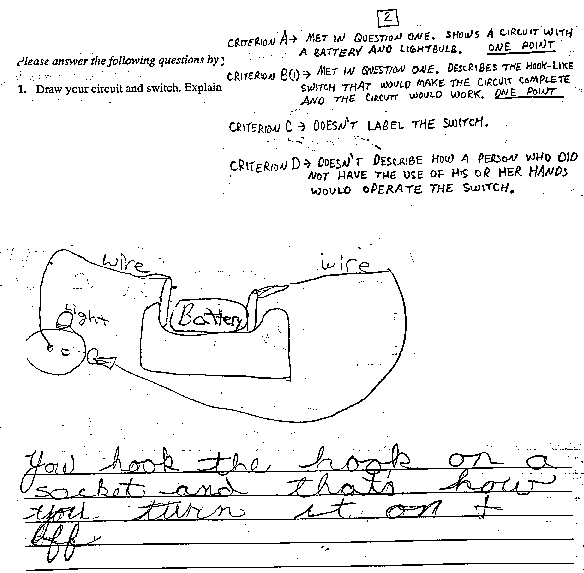 2
CRITERION A→ MET IN QUESTION ONE. SHOWS A CIRCUIT WITH
A BATTERY AND LIGHTBULB. ONE POINT
Please answer the following questions by
CRITERION B(1)→ MET IN QUESTION ONE. DESCRIBES THE HOOK-LIKE
SWITCH THAT WOULD MAKE THE CIRCUIT COMPLETE
AND THE CIRCUIT WOULD WORK. ONE POINT
1. Draw your circuit and switch. Explain
CRITERION C→ DOESN'T LABEL THE SWITCH.
CRITERION D→ DOESN'T DESCRIBE HOW A PERSON WHO DID
NOT HAVE THE USE OF HIS OR HER HANDS
WOULD OPERATE THE SWITCH.
wire
wire
Light
Battery
You hook the hook on a
socket and thats how
you turn it on +
off